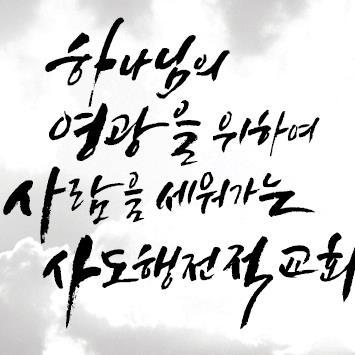 하나님의
영광을 위하여
사람을 세워가는
사도행전적 교회